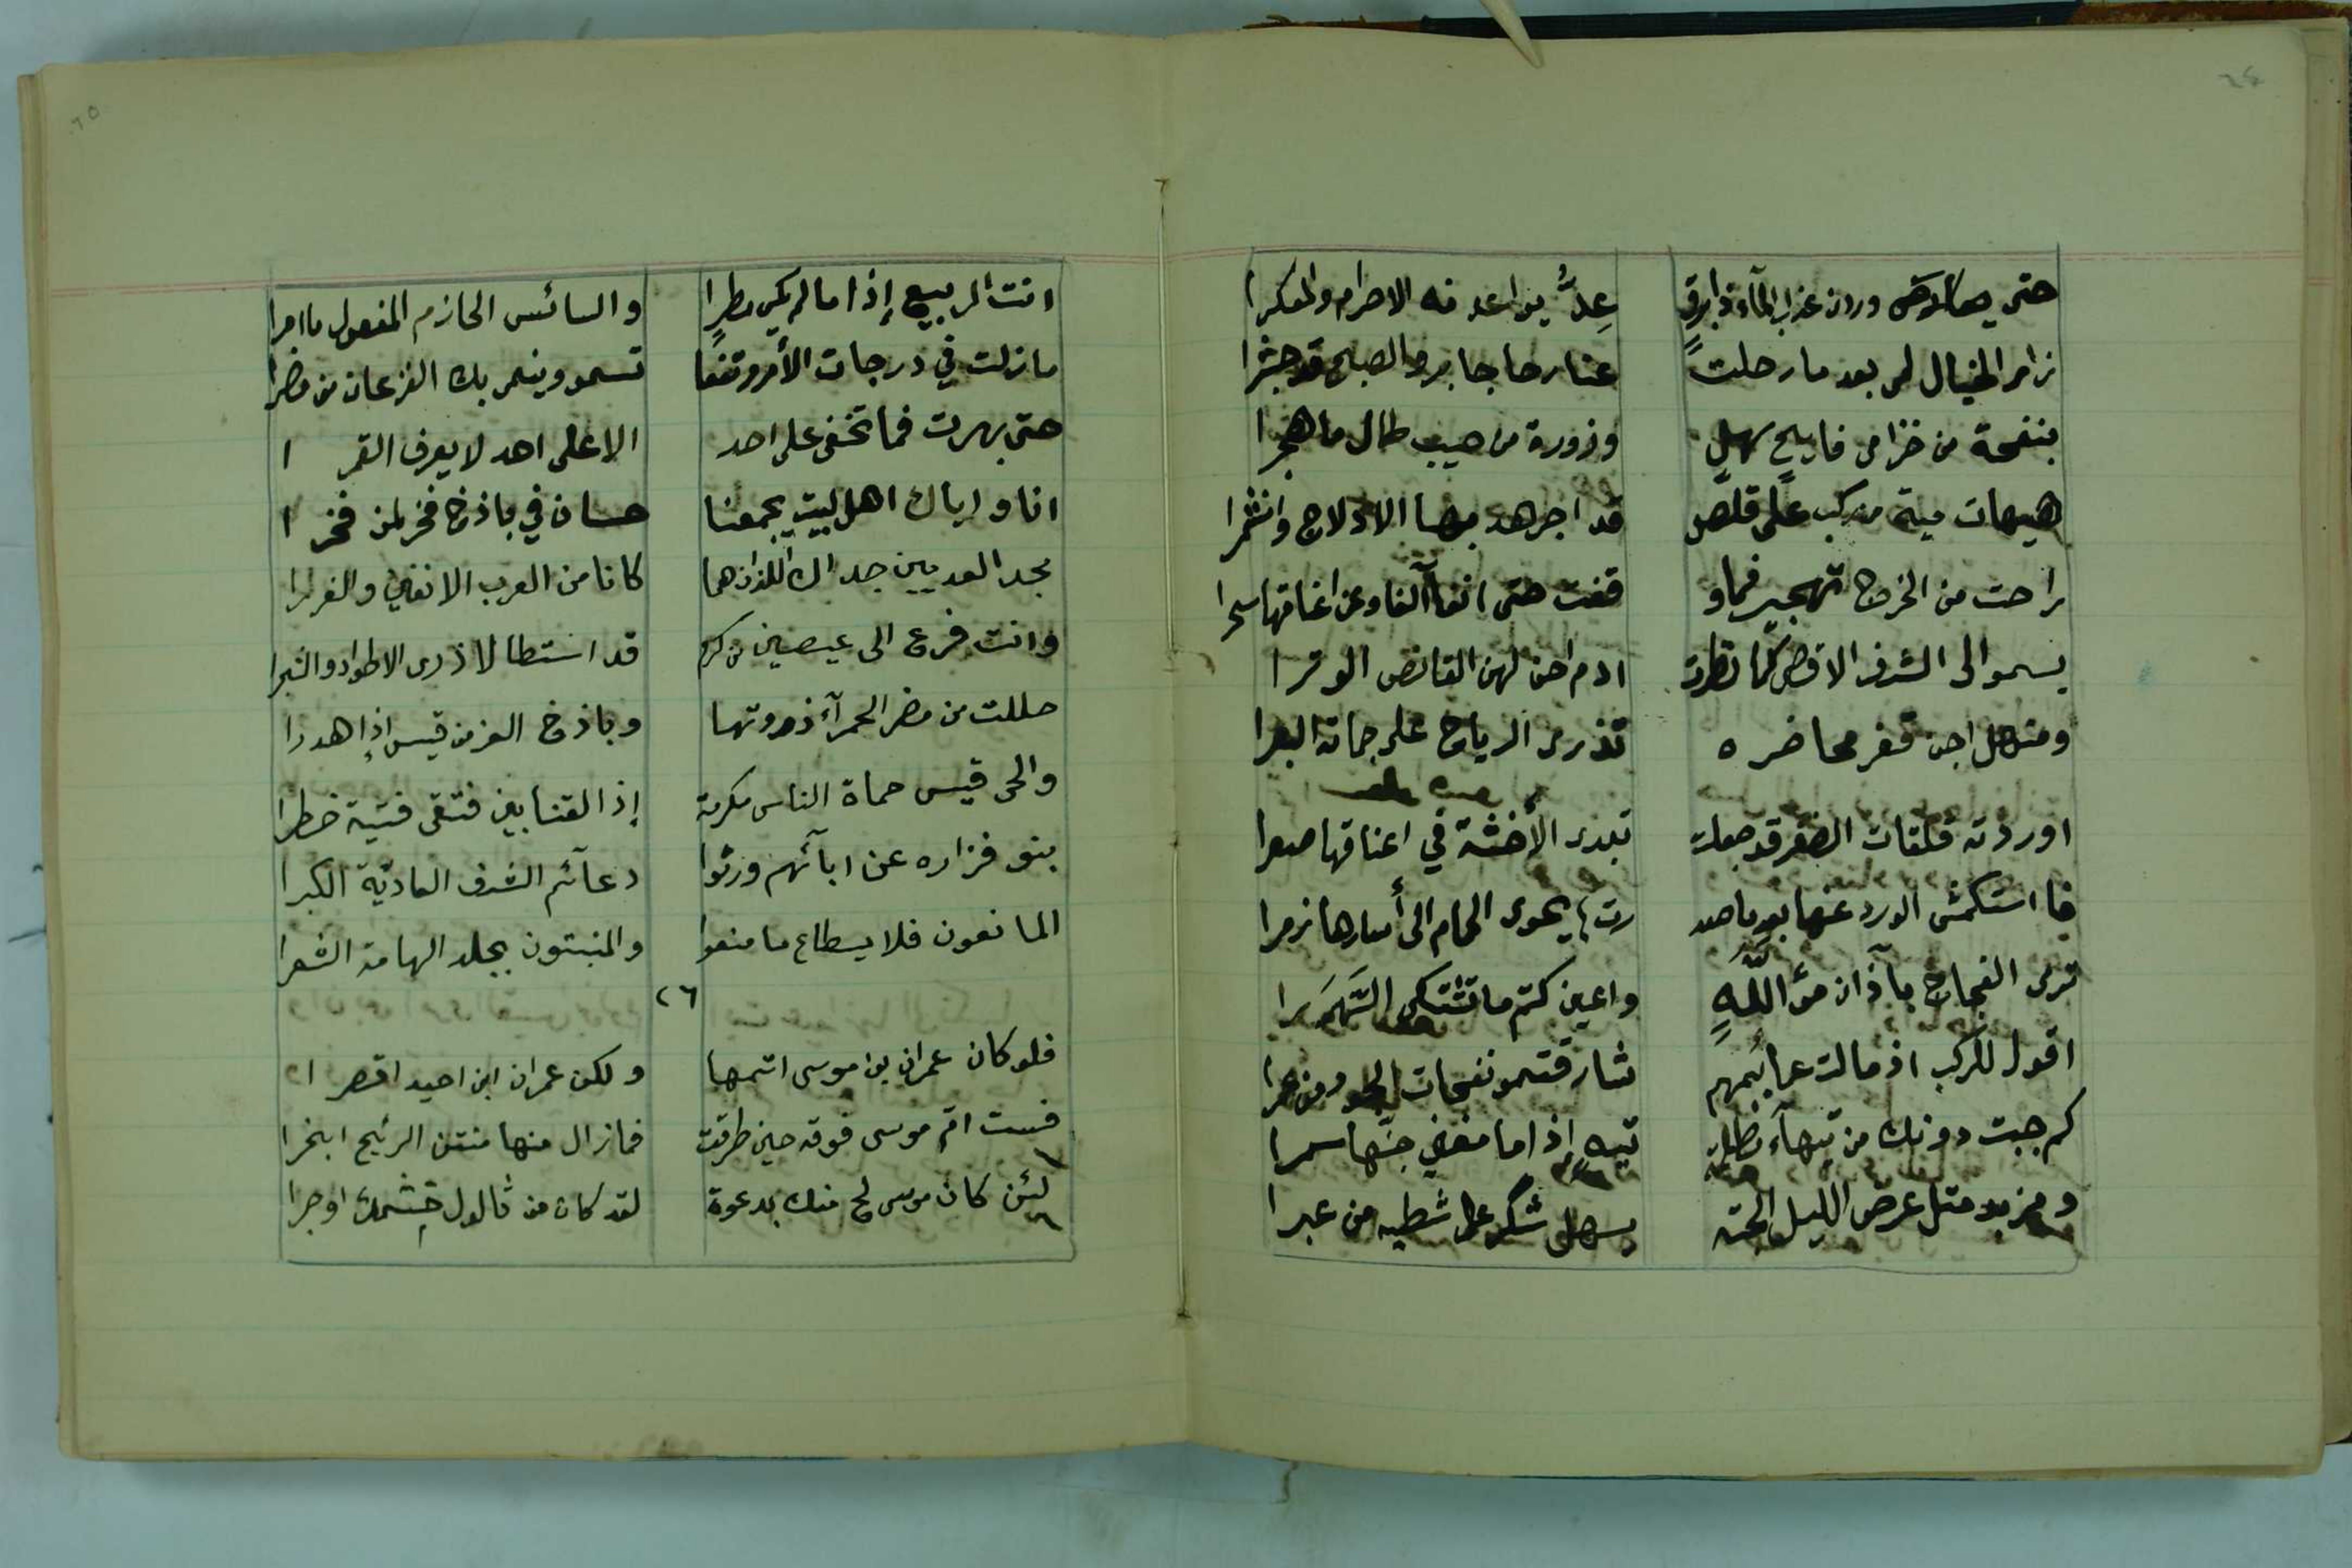 ٦٤
حتى وردن عذاب المآء ذا برقٍ عِدٌّ يواعدنه الاصرام والعكرا
زار الخيال لمى بعد ما رحلت عنا رحا جابر والصبح قد جشرا
بنفحة من خزامى فايح سهل وزورة من حبيب طال ما هجرا
هيهات مية من ركب على قلص قد اجرهد بها الادلاج وانشمرا
راحت من الخرج تهجيرا فما وقفت حتى انفأ الفاو عن اعناقها سحرا
يسمو الى الشرف الاقصى كما نظرت ادم احن لهن القانص الوترا
ومنهل اجن قفر محاضره تذرى الرياح على جماته البعرا
اوردته قلقات الضفر قد جعلت تبدى الأخشة في اعناقها صعرا
فاستكمش الورد عنها بعد ما صدرت يحوى الحمام الى أسارها زمرا
ترى الفجاج بآذان مؤللةٍ واعين كتم ما تشتكى السَّهَرا
اقول للركب اذ مالت عمائمهم شارفتمو نفحات الجود من عمرا
كم جبت دونك من تيهآء مظلمة تيه إذا ما مغنى جنّها سمرا
ومزبد مثل عرض الليل لجته يسهل شكر على شطيه من عبرا
٦٥
انت الربيع إذا ما لم يكن مطرٌ والسائس الحازم المفعول ما امرا
ما زلت في درجات الأمر مرتفعًا تسمو وينمى بك الفرعان من مضرا
حتى بهرت فما تخفى على احد الا على احد لا يعرف القمرا
انا واياك اهل البيت يجمعنا حسان في باذخ فخر لمن فخرا
مجد العديين جداك اللذان هما كانا من العرب الانفين والغررا
وانت فرع الى عيصين من كرم قد استطالا ذرى الاطواد والشجرا
حللت من مضر الحمرآء ذروتها وباذخ العز من قيس إذا هدرا
والحى قيس حماة الناس مكرمة إذا القنا بين فتقى فتية خطرا
بنو فزاره عن ابآئهم ورثوا دعآئم الشرف العاديّة الكبرا
المانعون فلا يسطاع ما منعوا والمنبتون بجلد الهامة الشعرا
٢٦
فلو كان عمران بن موسى اتمها ولكن عمران ابن احيد اقصرا
فست ام موسى فوقه حين طرقت فما زال منها منتن الريح ابخرا
لئن كان موسى لج منك بدعوة لقد كان من ثالول خشمك اوجرا